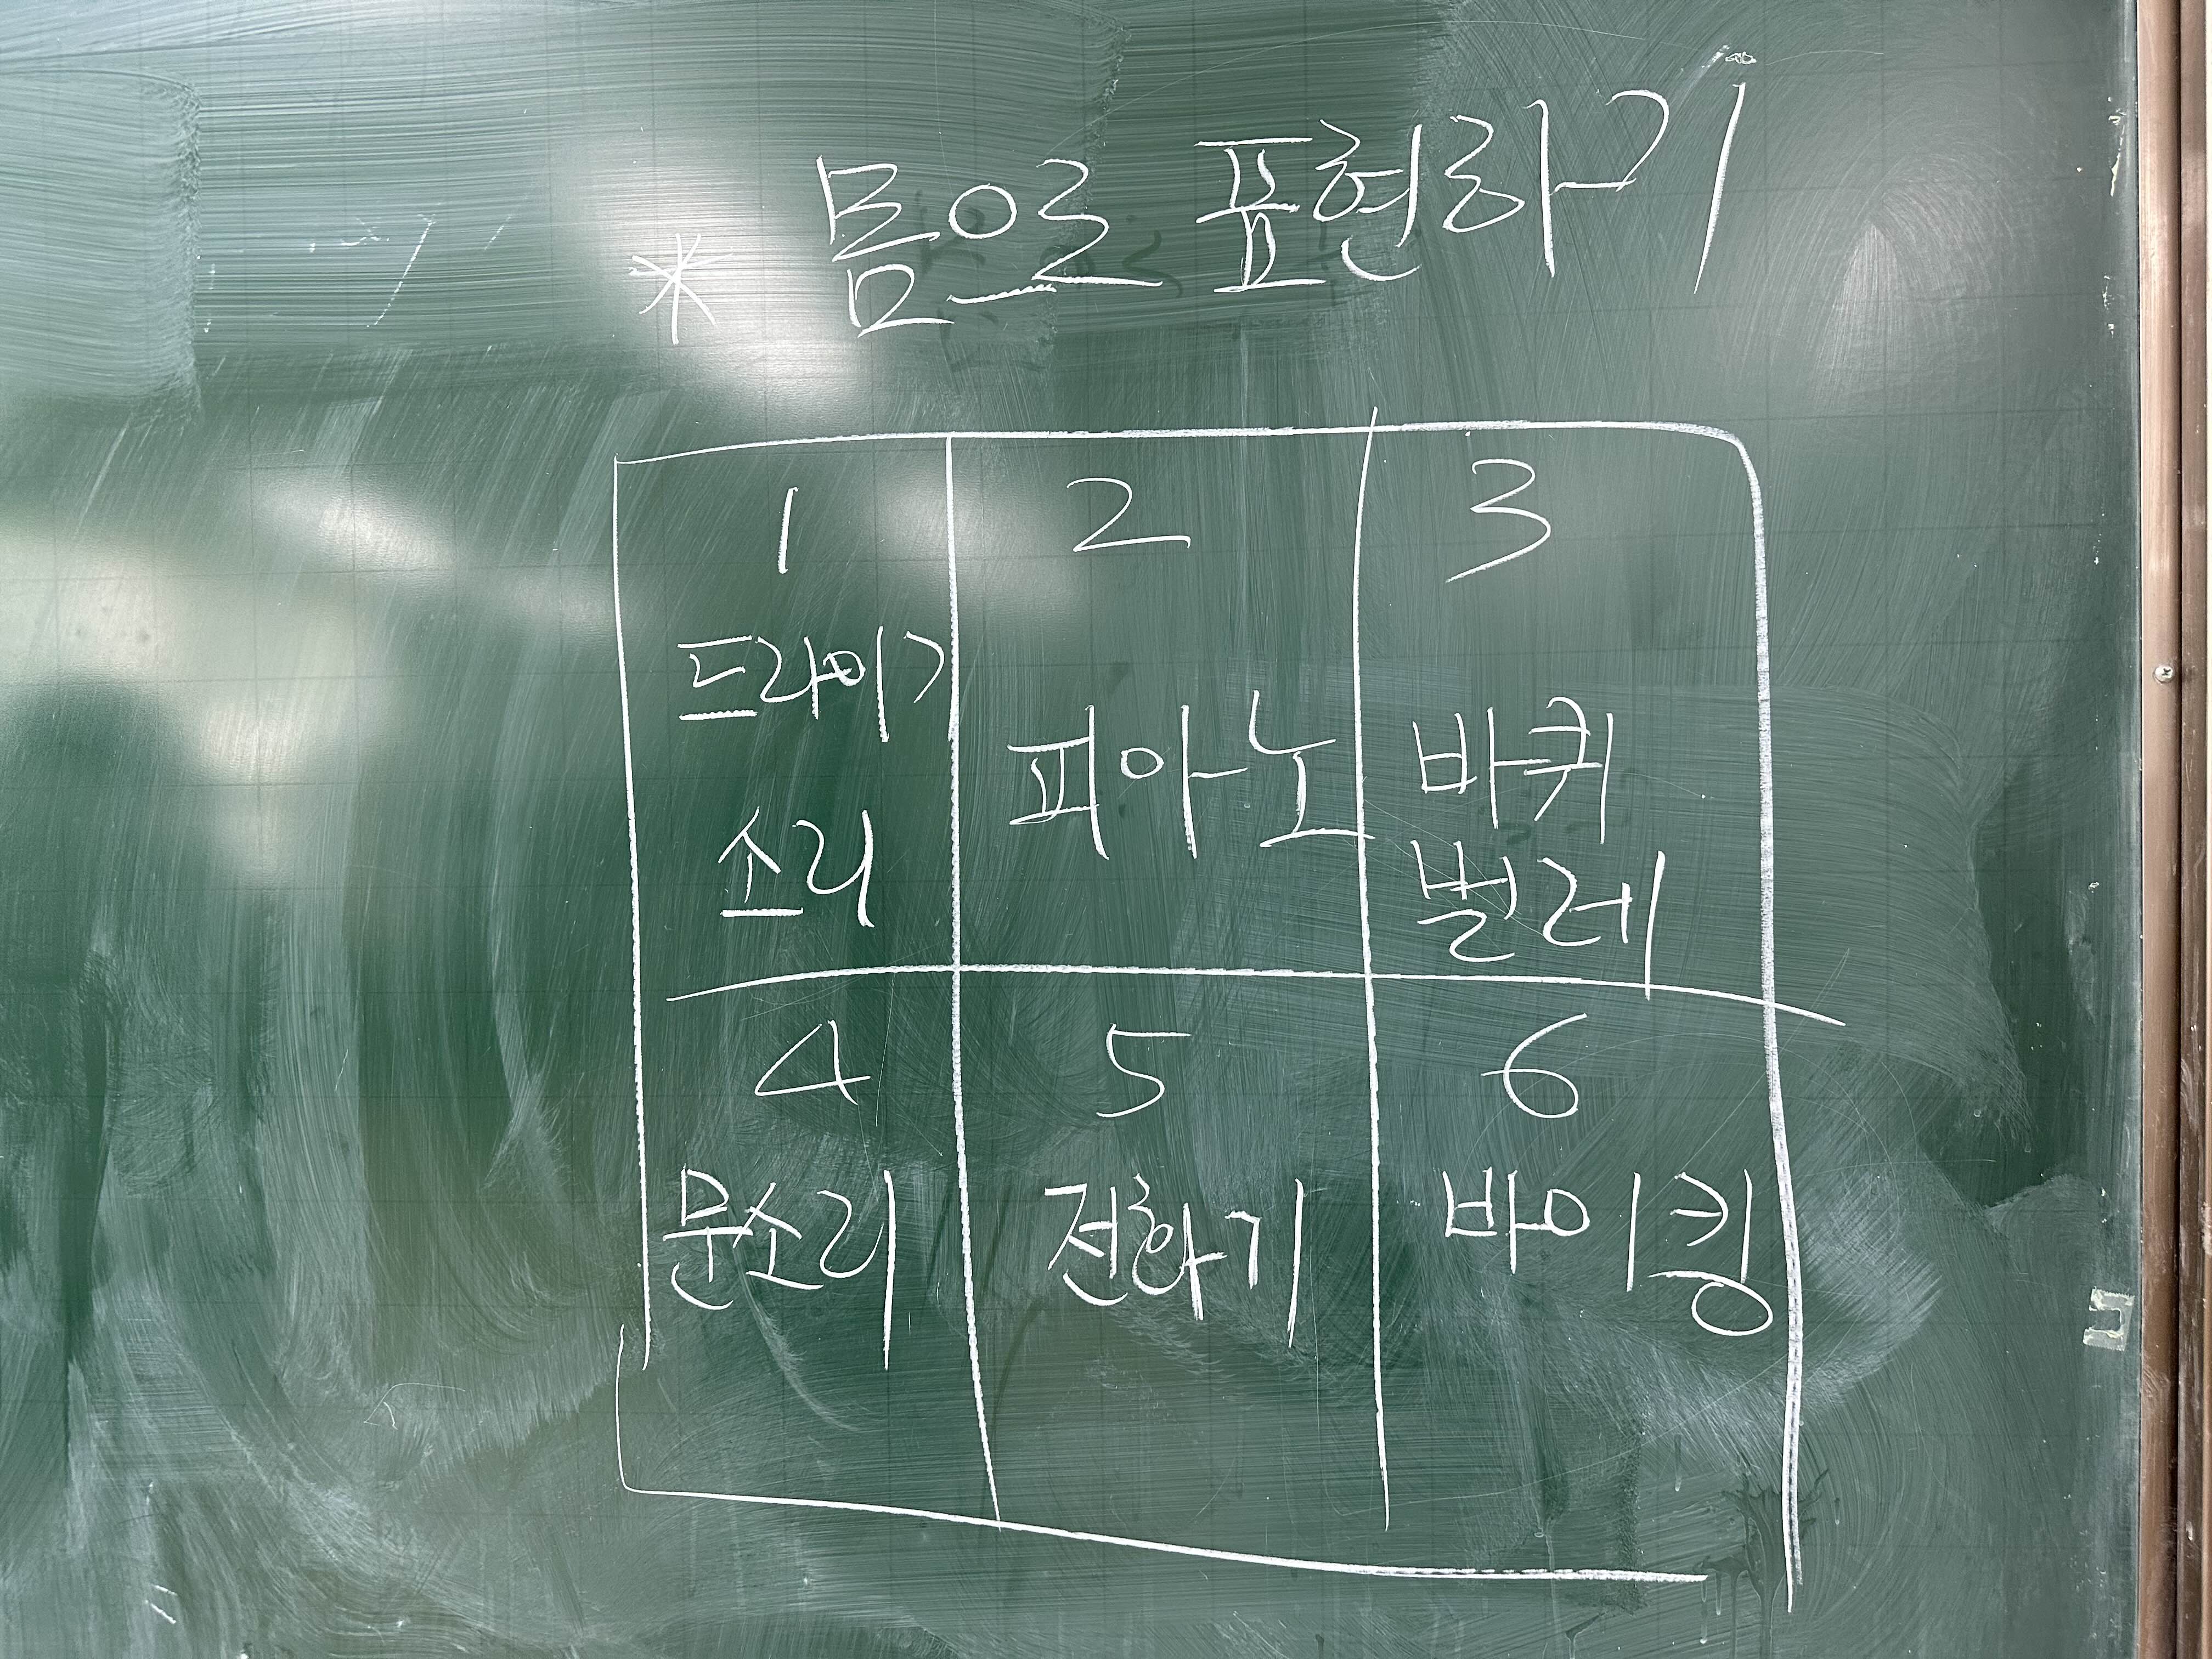 * 몸으로 표현하기
1
드라이기
소리
2
피아노
3
바퀴
벌레
4
문소리
5
전화기
6
바이킹